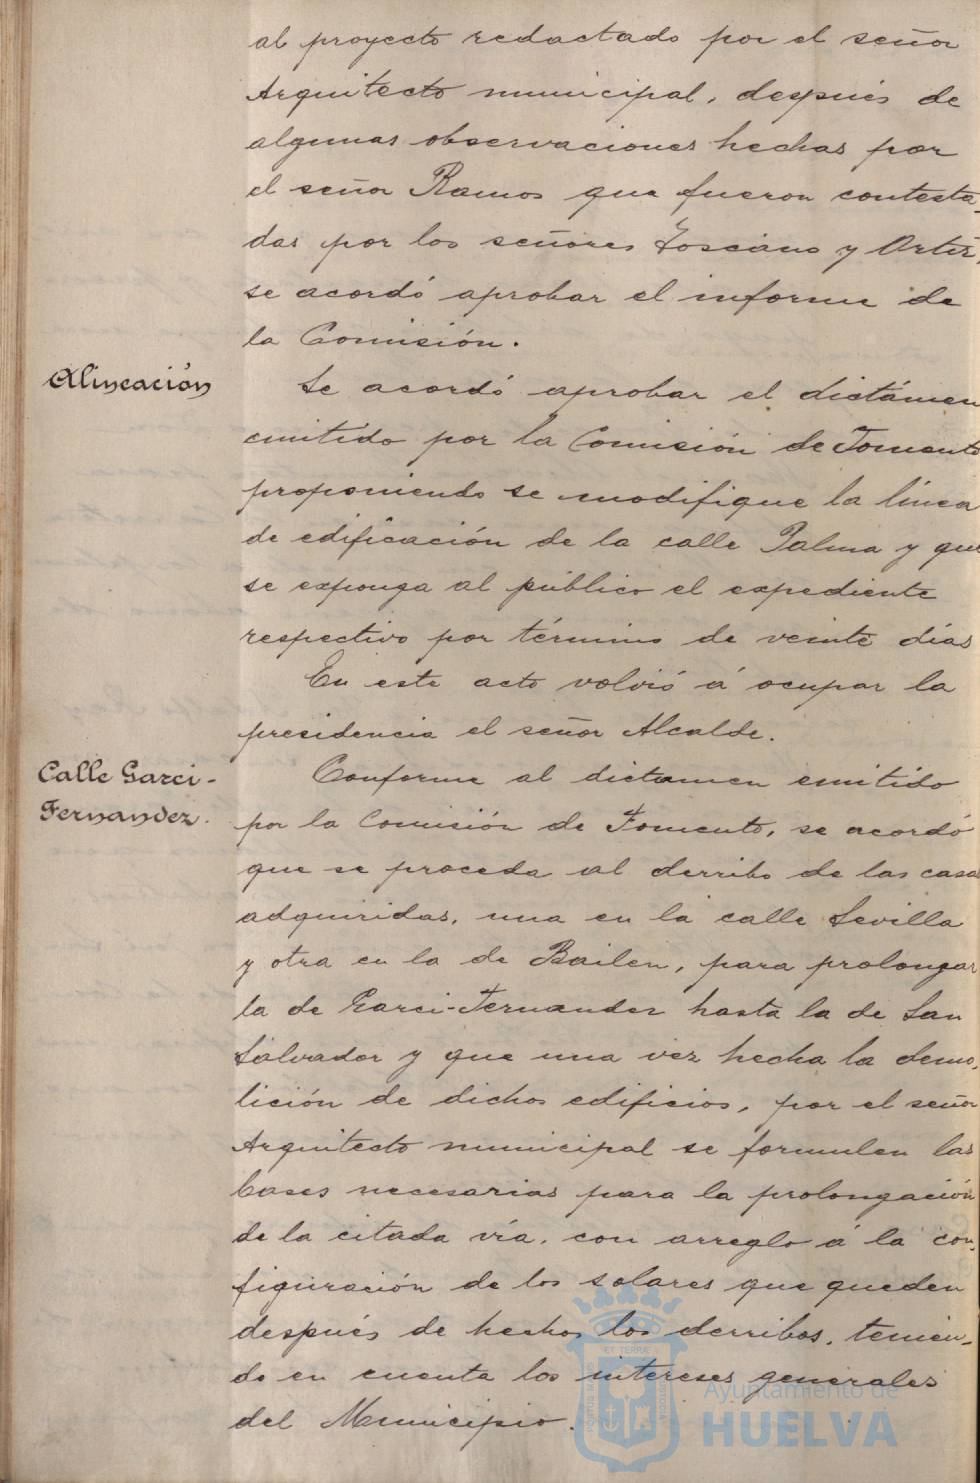 al proyecto redactado por el señor
Arquitecto municipal, después de
algunas observaciones hechas por
el señor Ramos que fueron contesta-
das por los señores Toscano y Ortiz,
se acordó aprobar el informe de
la Comisión.
Alineación
Se acordó aprobar el dictámen
emitido por la Comisión de Fomento
proponiendo se modifique la línea
de edificación de la calle Palma y que
se exponga al público el expediente
respectivo por término de veinte días
En este acto volvió á ocupar la
presidencia el señor Alcalde.
Calle Garci-
Fernandez.
Conforme al dictamen emitido
por la Comisión de Fomento, se acordó
que se proceda al derribo de las casas
adquiridas, una en la calle Sevilla
y otra en la de Bailen, para prolongar
la de Garci-Fernandez hasta la de San
Salvador y que una vez hecha la demo-
lición de dichos edificios, por el señor
Arquitecto municipal se formulen las
bases necesarias para la prolongación
de la citada vía, con arreglo á la con-
figuración de los solares que queden
después de hechos los derribos, tenien-
do en cuenta los intereses generales
del Municipio.
ET TERRÆ
Ayuntamiento de
HUELVA